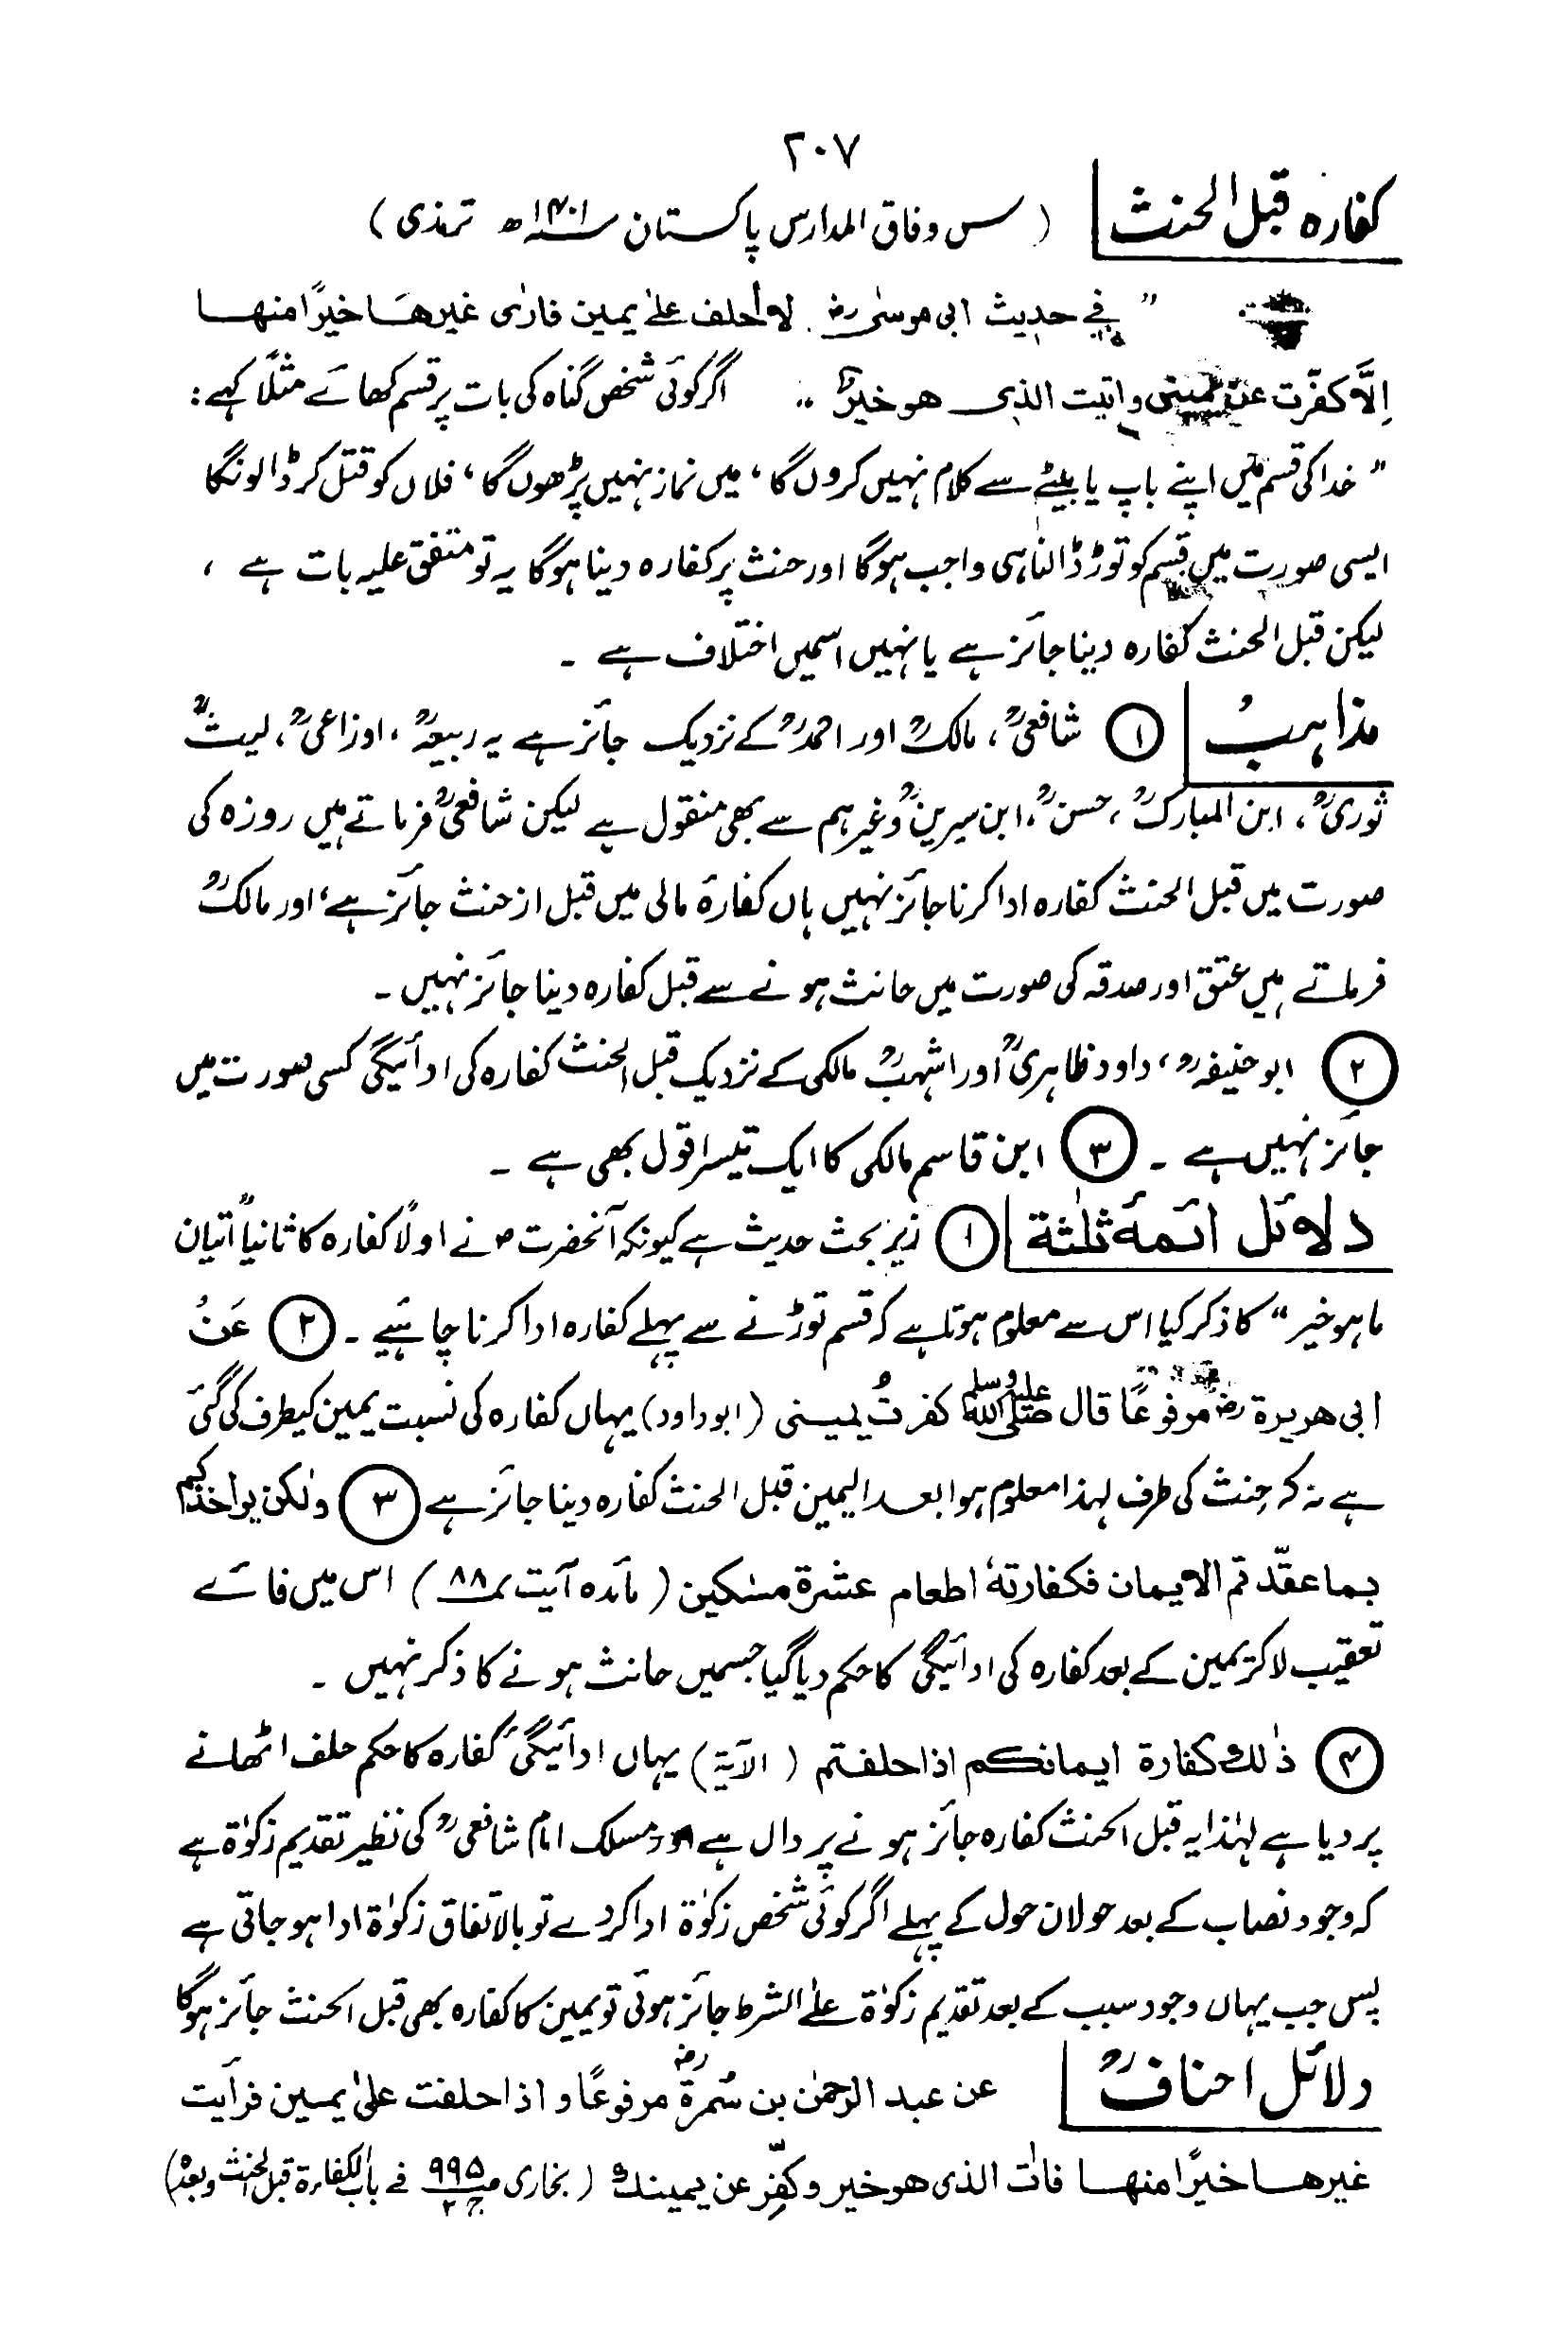 ۲۰۷
کفارہ قبل الحنث (س وفاق المدارس پاکستان سنہ ۱۴۰۱ھ ترمذی)
" فی حدیث ابی موسیٰ رض لا أحلف علیٰ یمین فارٰی غیرھا خیرًا منھا
اِلَّا کفّرت عن یمینی واتیت الذی ھو خیرٌ " اگر کوئی شخص گناہ کی بات پر قسم کھائے مثلًا کہے:
" خدا کی قسم میں اپنے باپ یا بیٹے سے کلام نہیں کروں گا، میں نماز نہیں پڑھوں گا، فلاں کو قتل کر ڈالونگا
ایسی صورت میں قسم کو توڑ ڈالنا ہی واجب ہوگا اور حنث پر کفارہ دینا ہوگا یہ تو متفق علیہ بات ہے ،
لیکن قبل الحنث کفارہ دینا جائز ہے یا نہیں اسمیں اختلاف ہے ۔
مذاہب ① شافعیؒ، مالکؒ اور احمدؒ کے نزدیک جائز ہے یہ ربیعہؒ، اوزاعیؒ، لیثؒ
ثوریؒ، ابن المبارکؒ، حسنؒ، ابن سیرینؒ وغیرہم سے بھی منقول ہے لیکن شافعیؒ فرماتے ہیں روزہ کی
صورت میں قبل الحنث کفارہ ادا کرنا جائز نہیں ہاں کفارۂ مالی میں قبل از حنث جائز ہے، اور مالکؒ
فرماتے ہیں عتق اور صدقہ کی صورت میں حانث ہونے سے قبل کفارہ دینا جائز نہیں ۔
② ابو حنیفہؒ، داود ظاہریؒ اور اشہبؒ مالکی کے نزدیک قبل الحنث کفارہ کی ادائیگی کسی صورت میں
جائز نہیں ہے ۔ ③ ابن قاسم مالکی کا ایک تیسرا قول بھی ہے ۔
دلائل ائمۂ ثلٰثة ① زیر بحث حدیث ہے کیونکہ آنحضرت ؐ نے اولًا کفارہ کا ثانیاً "اتیان
ما ہو خیر" کا ذکر کیا اس سے معلوم ہوتا ہے کہ قسم توڑنے سے پہلے کفارہ ادا کرنا چاہیے ۔ ② عَنْ
ابی ھریرة رض مرفوعًا قال صلی اللہ علیہ وسلم کفرتُ یمینی (ابوداود) یہاں کفارہ کی نسبت یمین کیطرف کی گئی
ہے نہ کہ حِنث کی طرف لہذا معلوم ہوا بعد الیمین قبل الحنث کفارہ دینا جائز ہے ③ ولٰکن یواخذکم
بما عقّدتم الایمان فکفارتہٗ اطعام عشرة مسٰکین (مائدہ آیت ۸۸) اس میں فائے
تعقیب لاکر یمین کے بعد کفارہ کی ادائیگی کا حکم دیا گیا جسمیں حانث ہونے کا ذکر نہیں ۔
④ ذٰلك کفارة ایمانکم اذا حلفتم (الآیۃ) یہاں ادائیگیٔ کفارہ کا حکم حلف اٹھانے
پر دیا ہے لہٰذا یہ قبل الحنث کفارہ جائز ہونے پر دال ہے اور مسلک امام شافعیؒ کی نظیر تقدیم زکوٰۃ ہے
کہ وجود نصاب کے بعد حولان حول کے پہلے اگر کوئی شخص زکوٰۃ ادا کر دے تو بالاتفاق زکوٰۃ ادا ہو جاتی ہے
پس جب یہاں وجود سبب کے بعد تقدیم زکوٰۃ علےٰ الشرط جائز ہوئی تو یمین کا کفارہ بھی قبل الحنث جائز ہوگا
دلائل احنافؒ عن عبد الرحمٰن بن سُمرة رض مرفوعًا و اذا حلفت علیٰ یمین فرأیت
غیرھا خیرًا منھا فات الذی ھو خیر و کفّر عن یمینك (بخاری ص۹۹۵ ج۲ فی باب الکفارة قبل الحنث وبعدہ)